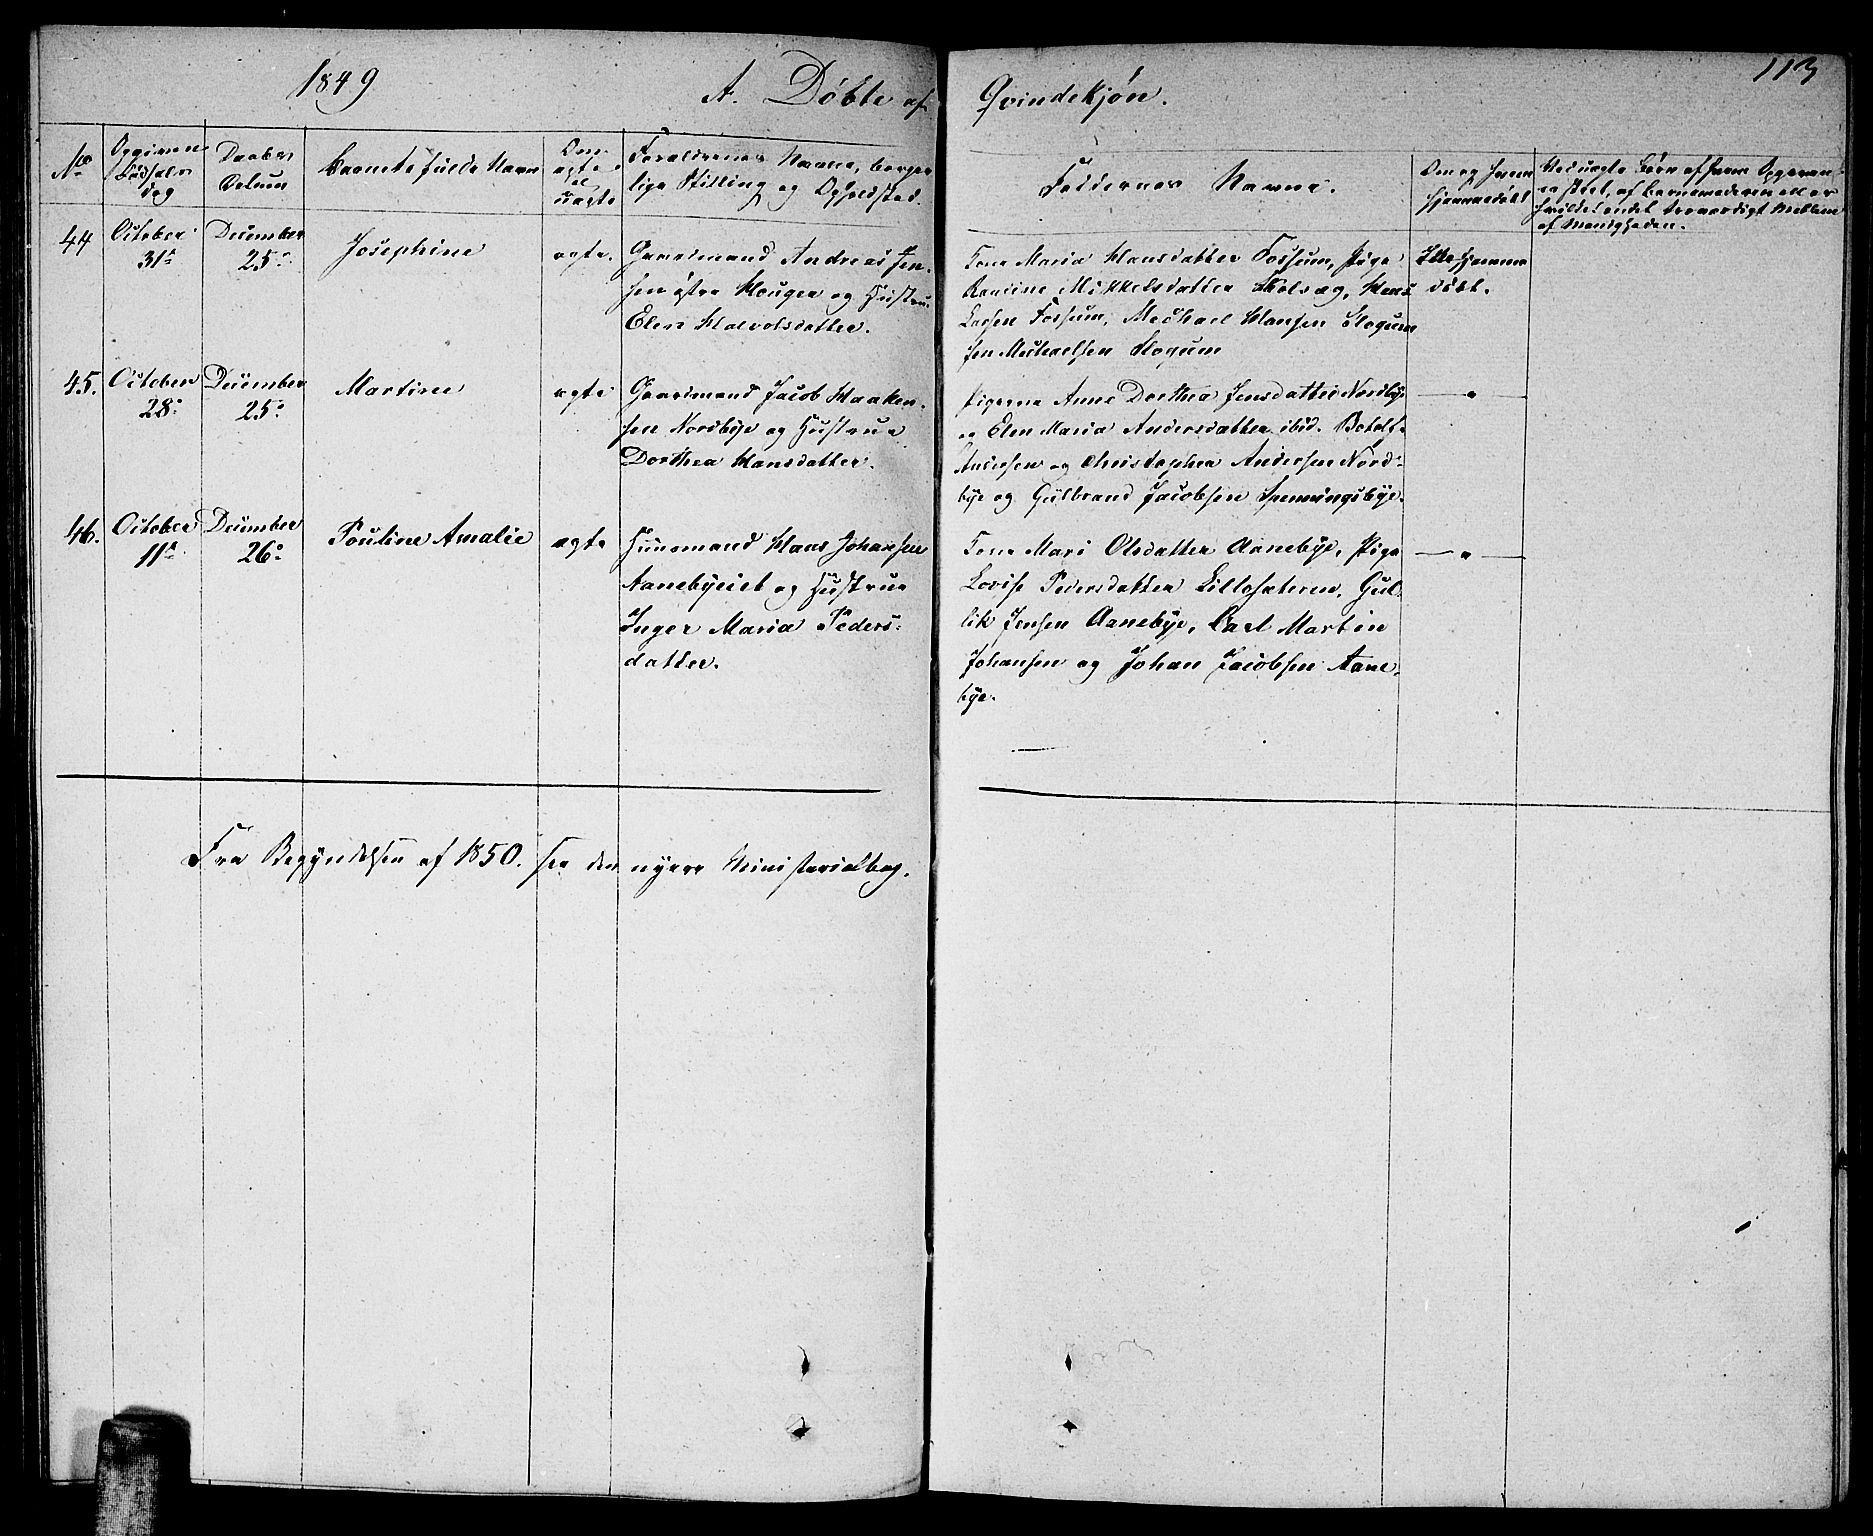 1849
A. Döbte af
Qvindekjön.
113
No
Opgiven
Födsels
dag
Daabs
Datum
Barnets fulde Navn
Om
ægte
el
uægte
Forældrenes Navne, borger
lige Stilling og Opholdsted.
Faddernes Navne.
Om og hvem
hjemmedöbt
Ved uægte Börn af hvem Opgivan
en skeet, af Barnemoderen eller
hvilketandet troværdigt Medlem
af Menigheden.
44
October
31te
December
25de
Josephine
ægte.
Gaardmand Andreas Jen-
sen östre Houger og Hustrue
Elen Halvolsdatter.
Kone Maria Hansdatter Fossum, Pige
Randine Mikkelsdatter Holsæg, Hans
Larsen Fossum, Michael Hansen Slogum
Jen Michaelsen Slogum
Ikke hjemme
döbt.
45.
October
28de
December
25de
Martine
ægte
Gaardmand Jacob Haaken-
sen Nordbye og Hustrue
Dorthea Hansdatter.
Pigerne Anne Dorthea Jensdatter Nordbye
og Elen Maria Andersdatter ibid. Botolf
Andersen og Christopher Andersen Nord-
bye og Gulbrand Jacobsen Spenningsbye.
— " —
46.
October
11te
December
26de
Pouline Amalie
ægte
Huusmand Hans Johansen
Aanebyeiet og Hustrue
Inger Maria Peders-
datter.
Kone Mari Olsdatter Aanebye, Pige
Lovise Pedersdatter Lillesæteren, Gul-
lik Jensen Aanebye, Carl Martin
Johansen og Johan Jacobsen Aane-
bye.
— " —
Fra Begyndelsen af 1850. see den nyere Ministerialbog.